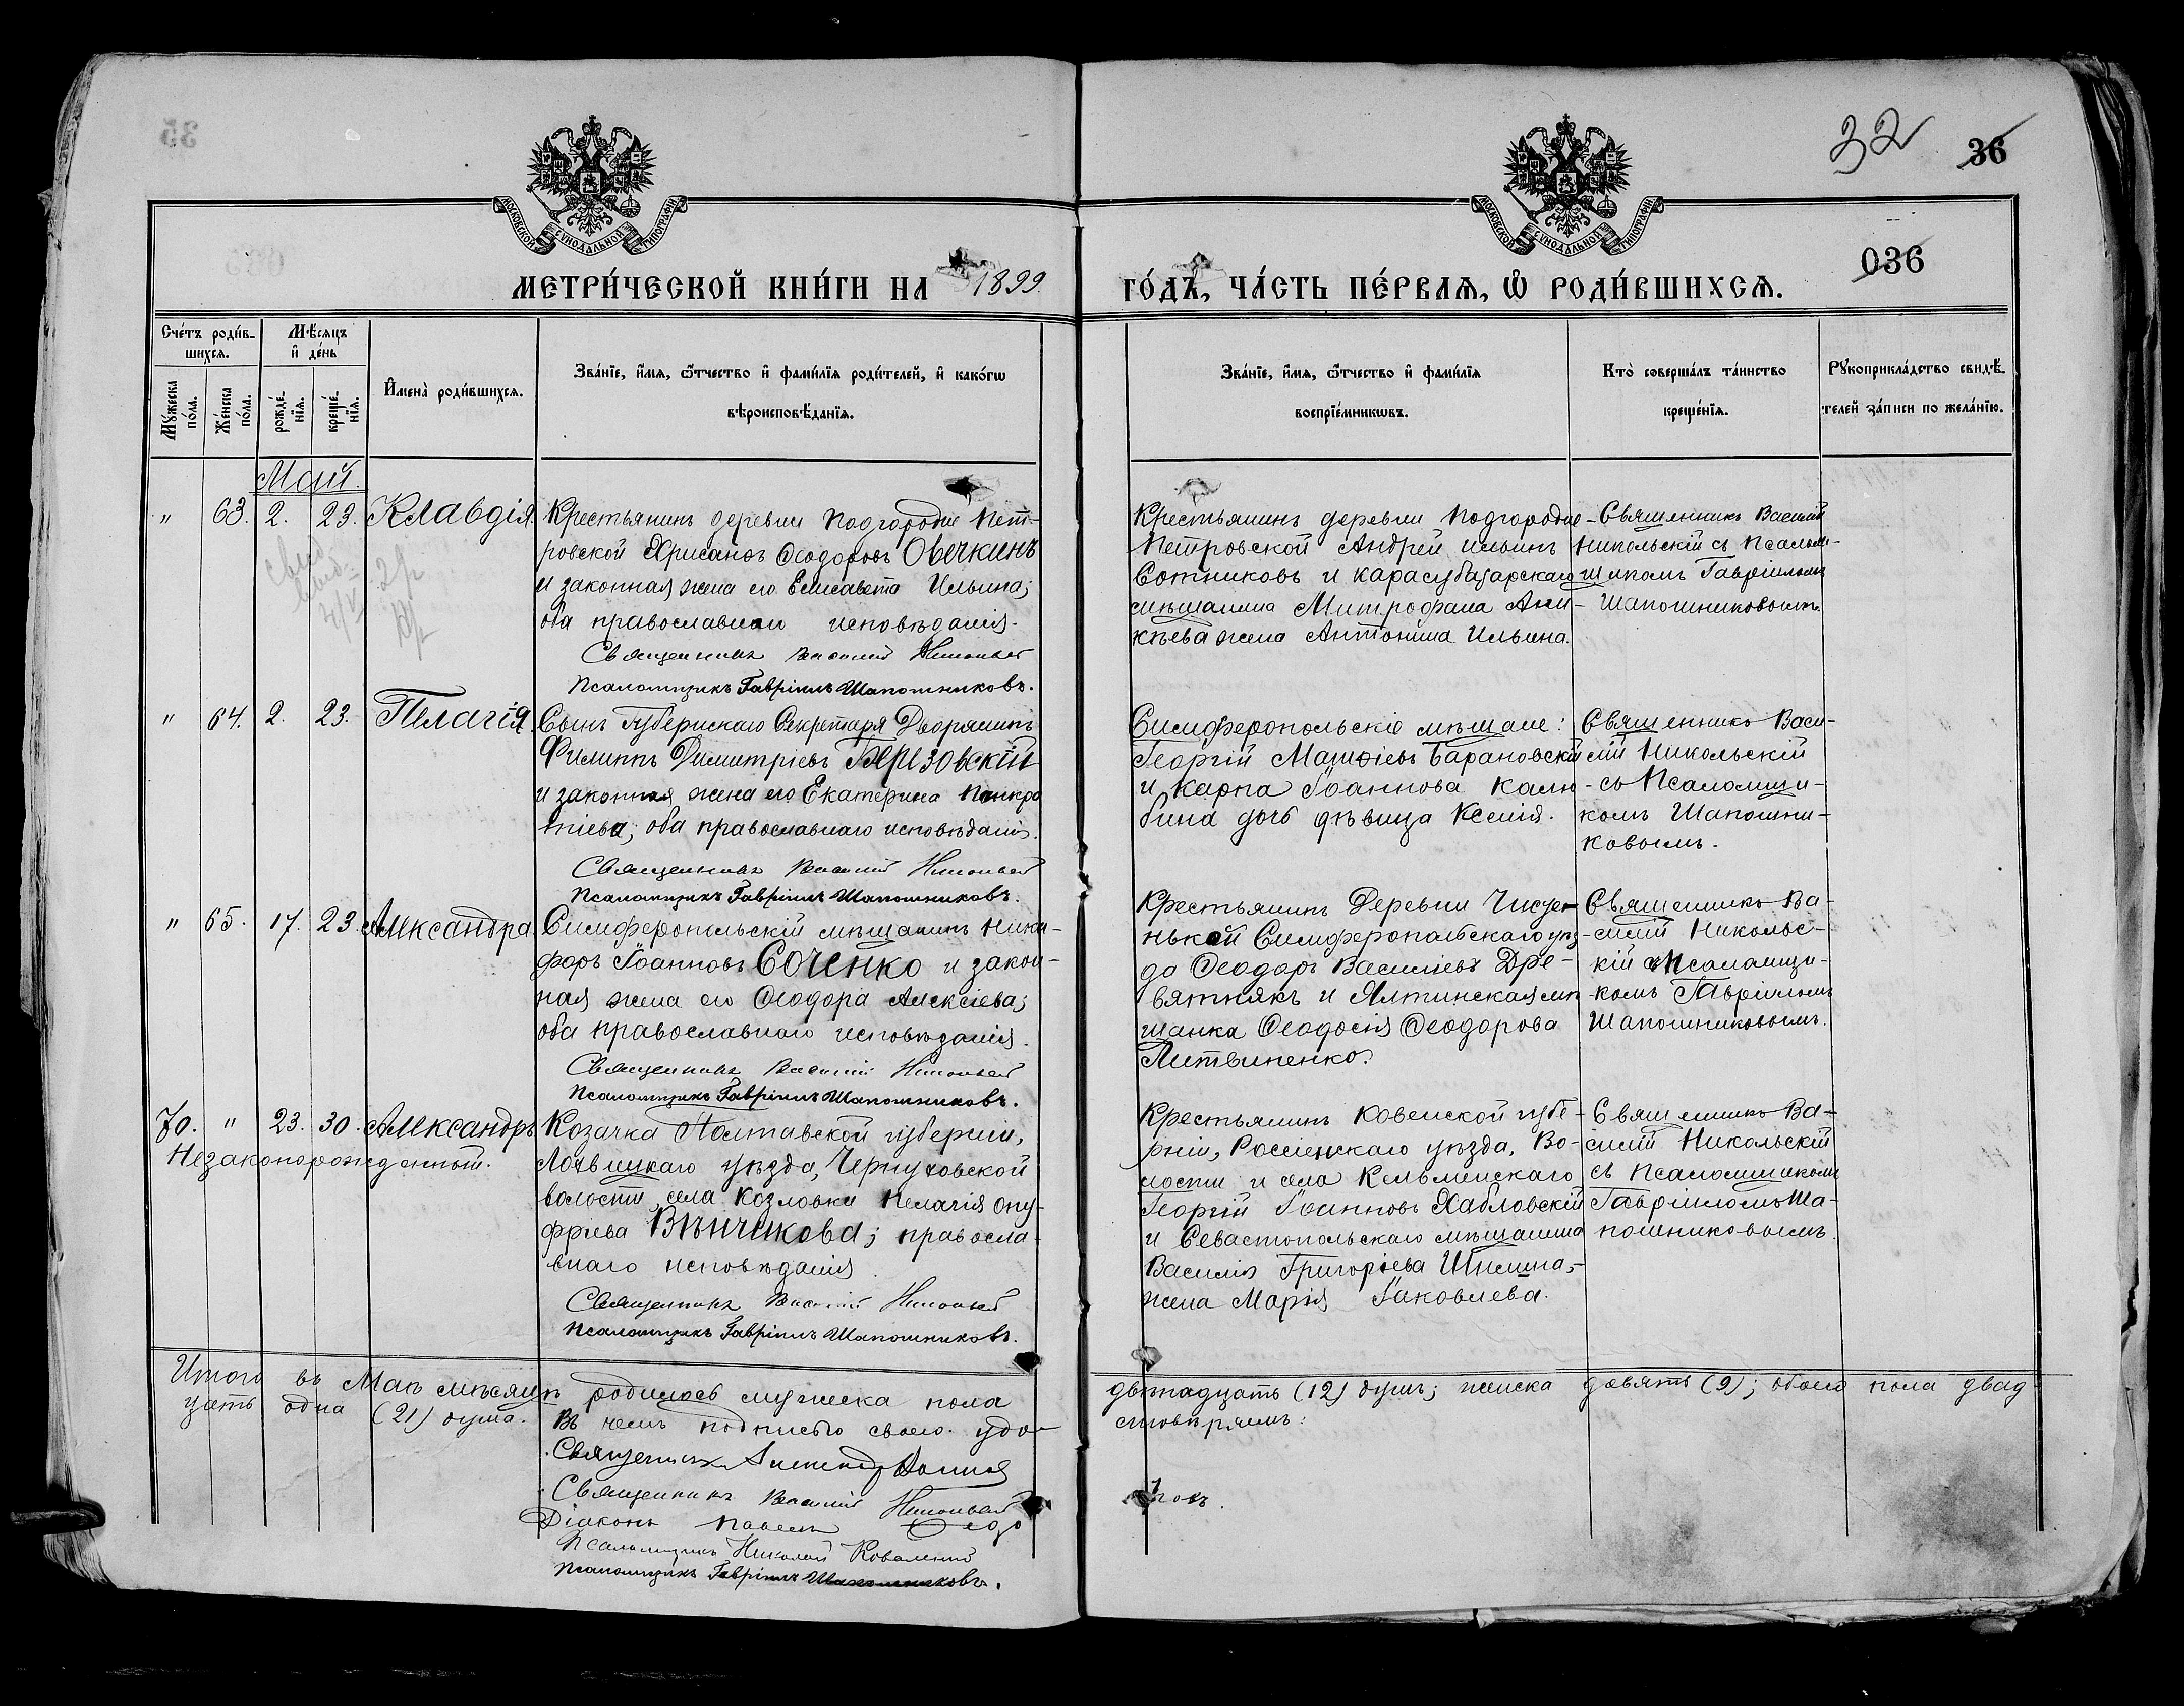 32
36
МОСКОВСКОЙ СѴНОДАЛЬНОЙ ТИПОГРАФІИ
МОСКОВСКОЙ СѴНОДАЛЬНОЙ ТИПОГРАФІИ
036
МЕТРИ́ЧЕСКОЙ КНИ́ГИ НА 1899.
ГО́ДЪ, ЧА́СТЬ ПЕ́РВАѦ, Ѡ҆ РОДИ́ВШИХСѦ.
Сче́тъ роди́в-
шихсѧ.
Мꙋ́жеска
по́ла.
Же́нска
по́ла.
Мѣ́сѧцъ
и҆ де́нь
рожде́-
нїѧ.
креще́-
нїѧ.
И҆мена̀ роди́вшихсѧ.
Зва́нїе, и҆́мѧ, ѻ҆́тчество и҆ фами́лїѧ роди́телей, и҆ како́гѡ
вѣроисповѣ́данїѧ.
Зва́нїе, и҆́мѧ, ѻ҆́тчество и҆ фами́лїѧ
воспрїе́мникѡвъ.
Кто̀ соверша́лъ та́инство
креще́нїѧ.
Рꙋкоприкла́дство свидѣ́-
телей за́писи по жела́нїю.
Май.
" 63. 2. 23. Клавдія.
Крестьянинъ деревни Подгородне Пет-
ровской Хрисанѳъ Ѳеодоровъ Овечкинъ
и законная жена его Елисавета Ильина;
оба православнаго исповѣданія.
Священникъ Василій Никольскій
Псаломщикъ Гавріилъ Шапошниковъ.
Крестьянинъ деревни Подгородне-
Петровской Андрей Ильинъ
Сотниковъ и карасубазарскаго
мѣщанина Митрофана Ани-
кѣева жена Антонина Ильина.
Священникъ Василій
Никольскій съ Псалом-
щикомъ Гавріиломъ
Шапошниковымъ.
" 64. 2. 23. Пелагія.
Сынъ Губернскаго Секретаря Дворянинъ
Филиппъ Димитріевъ Березовскій
и законная жена его Екатерина Панкра
тіева; оба православнаго исповѣданія.
Священникъ Василій Никольскій
Псаломщикъ Гавріилъ Шапошниковъ.
Симферопольскіе мѣщане:
Георгій Матѳіевъ Барановскій
и Карпа Іоаннова Калю-
бина дочь дѣвица Ксенія.
Священникъ Васи-
лій Никольскій
съ Псаломщи-
комъ Шапошни-
ковымъ.
" 65. 17. 23. Александра.
Симферопольскій мѣщанинъ Ники-
форъ Іоанновъ Соченко и закон-
ная жена его Ѳеодора Алексіева;
оба православнаго исповѣданія.
Священникъ Василій Никольскій
Псаломщикъ Гавріилъ Шапошниковъ.
Крестьянинъ Деревни Чисте-
нькой Симферопольскаго уѣз-
да Ѳеодоръ Василіевъ Дре-
вятнякъ и Ялтинская мѣ
щанка Ѳеодосія Ѳеодорова
Литвиненко.
Священникъ Ва-
силій Никольс-
кій съ Псаломщи-
комъ Гавріиломъ
Шапошниковымъ.
70. " 23. 30. Александръ
Незаконорожденный.
Козачка Полтавской губерніи,
Лохвицкаго уѣзда, Чернуховской
волости, села Козловки Пелагія Ону-
фріева Вѣнчикова; правосла-
внаго исповѣданія.
Священникъ Василій Никольскій
Псаломщикъ Гавріилъ Шапошниковъ.
Крестьянинъ Ковенской губе-
рніи, Россіенскаго уѣзда, Во-
лости и села Кельменскаго
Георгій Іоанновъ Хабловскій
и Севастопольскаго мѣщанина
Василія Григоріева Шилина,-
жена Марія Іаковлева.
Священникъ Ва-
силій Никольскій
съ Псаломщикомъ
Гавріиломъ Ша-
пошниковымъ.
Итого въ Маѣ мѣсяцѣ родилось мужеска пола двѣнадцать (12) душъ; женска девять (9); обоего пола двад-
цать одна (21) душа.
Въ чемъ подписью своею удо-
стовѣряемъ:
Священникъ Александръ
Священникъ Василій Никольскій
Діаконъ Павелъ
Псаломщикъ Николай Ковалевскій
Псаломщикъ Гавріилъ Шапошниковъ.